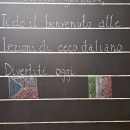 Tutto il benvenuto alle
lezioni di ceco italiano
Divertiti oggi